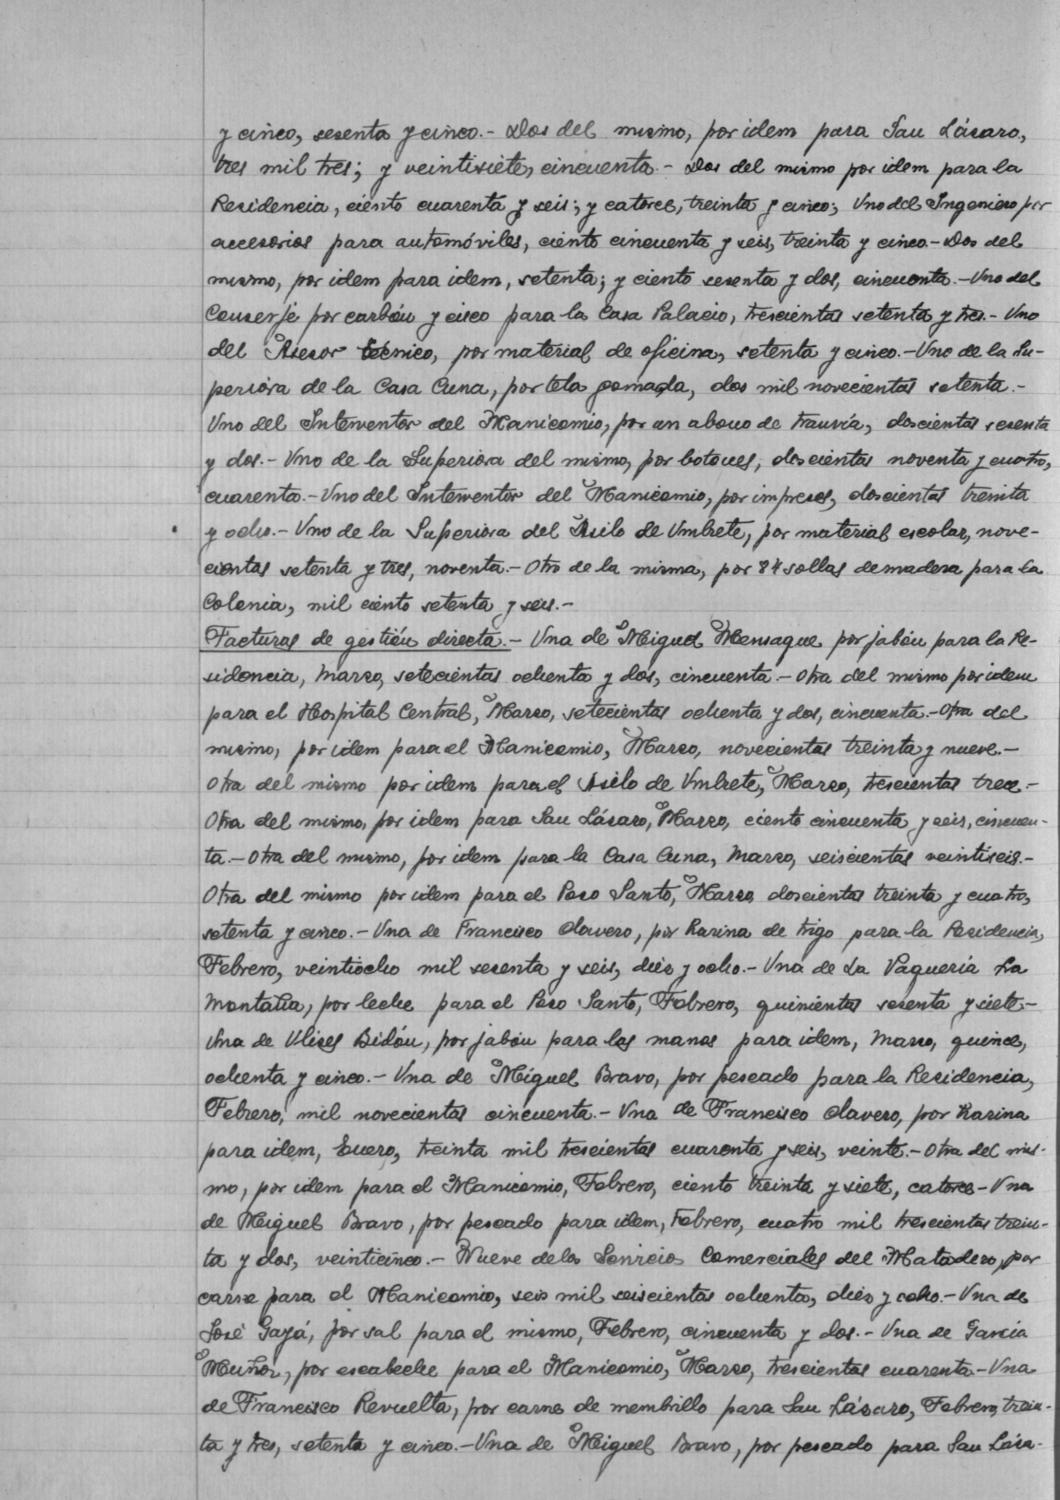 y cinco, sesenta y cinco.- Dos del mismo, por idem para San Lázaro,
tres mil tres; y veintisiete, cincuenta.- Dos del mismo por idem para la
Residencia, ciento cuarenta y seis; y catorce, treinta y cinco; Uno del Ingeniero por
accesorios para automóviles, ciento cincuenta y seis, treinta y cinco.- Dos del
mismo, por idem para idem, setenta; y ciento sesenta y dos, cincuenta.- Uno del
Conserje por carbón y cisco para la Casa Palacio, trescientas setenta y tres.- Uno
del Asesor técnico, por material de oficina, setenta y cinco.- Uno de la Su-
periora de la Casa Cuna, por tela gomada, dos mil novecientas setenta.-
Uno del Interventor del Manicomio, por un abono de tranvía, doscientas sesenta
y dos.- Uno de la Superiora del mismo, por botones, doscientas noventa y cuatro,
cuarenta.- Uno del Interventor del Manicomio, por impresos, doscientas treinta
y ocho.- Uno de la Superiora del Asilo de Umbrete, por material escolar, nove-
cientas setenta y tres, noventa.- Otro de la misma, por 84 sollas de madera para la
Colonia, mil ciento setenta y seis.-
Facturas de gestión directa.- Una de Miguel Mensaque por jabón para la Re-
sidencia, Marzo, setecientas ochenta y dos, cincuenta.- Otra del mismo por idem
para el Hospital Central, Marzo, setecientas ochenta y dos, cincuenta.- Otra del
mismo, por idem para el Manicomio, Marzo, novecientas treinta y nueve.-
Otra del mismo por idem para el Asilo de Umbrete, Marzo, trescientas trece.-
Otra del mismo, por idem para San Lázaro, Marzo, ciento cincuenta y seis, cincuen-
ta.- Otra del mismo, por idem para la Casa Cuna, Marzo, seiscientas veintiseis.-
Otra del mismo por idem para el Pozo Santo, Marzo, doscientas treinta y cuatro,
setenta y cinco.- Una de Francisco Olavero, por harina de trigo para la Residencia,
Febrero, veintiocho mil sesenta y seis, diez y ocho.- Una de La Vaquería La
Montaña, por leche para el Pozo Santo, Febrero, quinientas sesenta y siete.-
Una de Ulises Bidón, por jabón para las manos para idem, Marzo, quince,
ochenta y cinco.- Una de Miguel Bravo, por pescado para la Residencia,
Febrero, mil novecientas cincuenta.- Una de Francisco Olavero, por harina
para idem, Enero, treinta mil trescientas cuarenta y seis, veinte.- Otra del mis-
mo, por idem para el Manicomio, Febrero, ciento treinta y siete, catorce.- Una
de Miguel Bravo, por pescado para idem, Febrero, cuatro mil trescientas trein-
ta y dos, veinticinco.- Nueve de los Servicios Comerciales del Matadero, por
carne para el Manicomio, seis mil seiscientas ochenta, diez y ocho.- Una de
José Gayá, por sal para el mismo, Febrero, cincuenta y dos.- Una de García
Muñoz, por escabeche para el Manicomio, Marzo, trescientas cuarenta.- Una
de Francisco Revuelta, por carne de membrillo para San Lázaro, Febrero, trein-
ta y tres, setenta y cinco.- Una de Miguel Bravo, por pescado para San Láza-